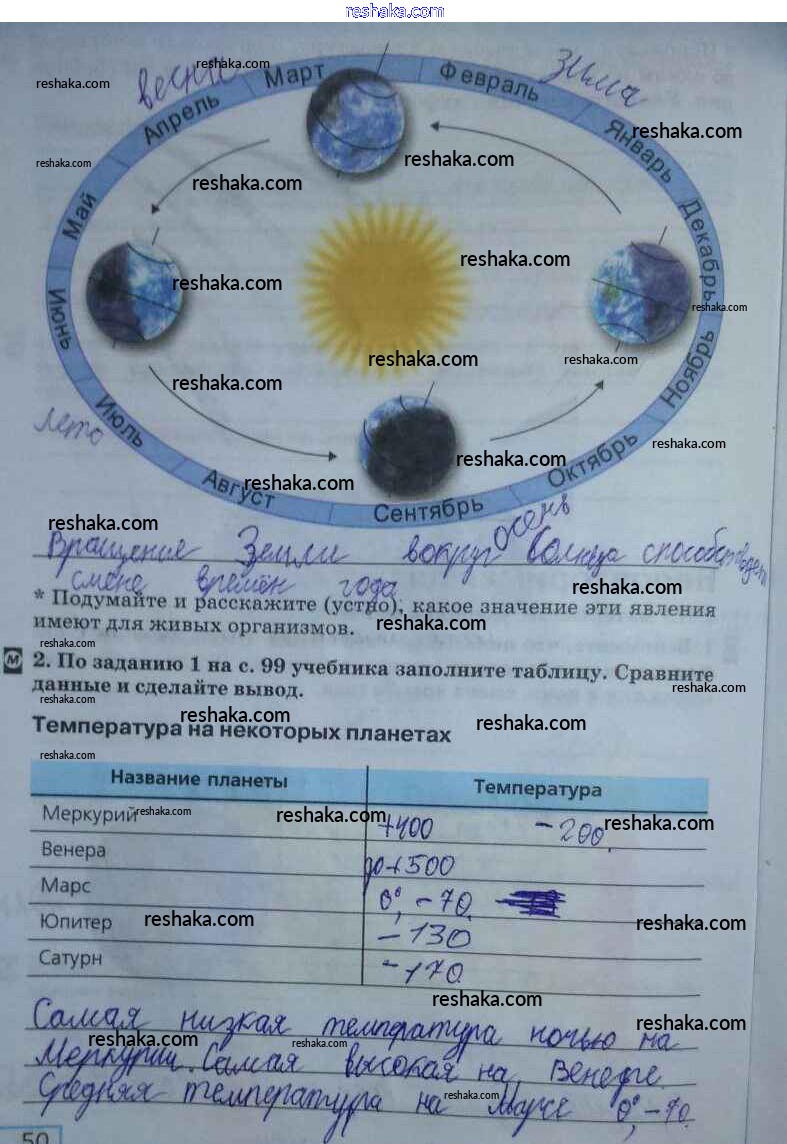 reshaka.com
весна
Март
Февраль
зима
Апрель
Январь
Май
Декабрь
Июнь
Ноябрь
Июль
лето
Август
Сентябрь
Октябрь
осень
Вращение Земли вокруг Солнца
смене времён года
* Подумайте и расскажите (устно), какое значение эти явления
имеют для живых организмов.
М 2. По заданию 1 на с. 99 учебника заполните таблицу. Сравните
данные и сделайте вывод.
Температура на некоторых планетах
Название планеты Температура
Меркурий +400 -200
Венера до +500
Марс 0°, -70
Юпитер -130
Сатурн -170
Самая низкая температура ночью на
Меркурии. Самая высокая на Венере
Средняя температура на Марсе 0°, -70
50